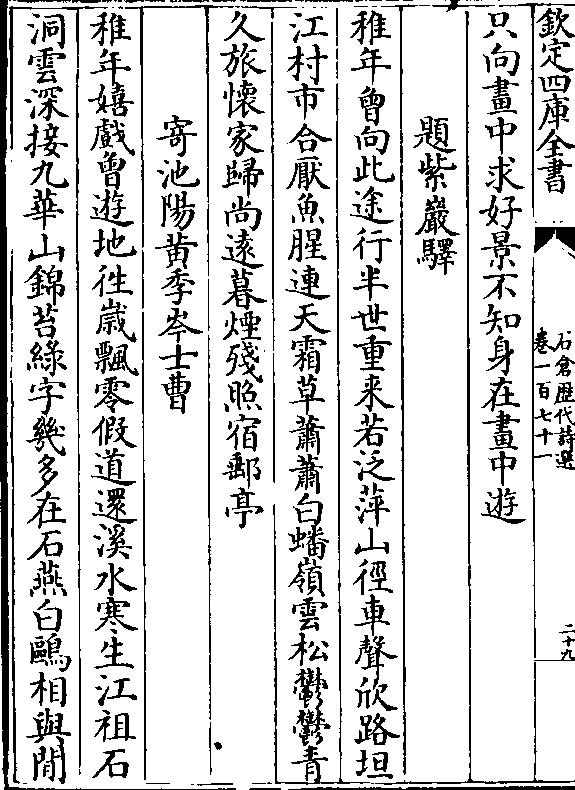 欽定四庫全書
石倉歷代詩選
卷一百七十一
二十九
只向畫中求好景不知身在畫中遊
題紫巖驛
稚年曾向此途行半世重来若泛萍山徑車聲欣路坦
江村市合厭魚腥連天霜草蕭蕭白蟠嶺雲松鬱鬱青
久旅懷家歸尚遠暮煙殘照宿郵亭
寄池陽黄季岑士曹
稚年嬉戲曾遊地徃嵗飄零假道還溪水寒生江祖石
洞雲深接九華山錦苔綠字幾多在石燕白鷗相與閒